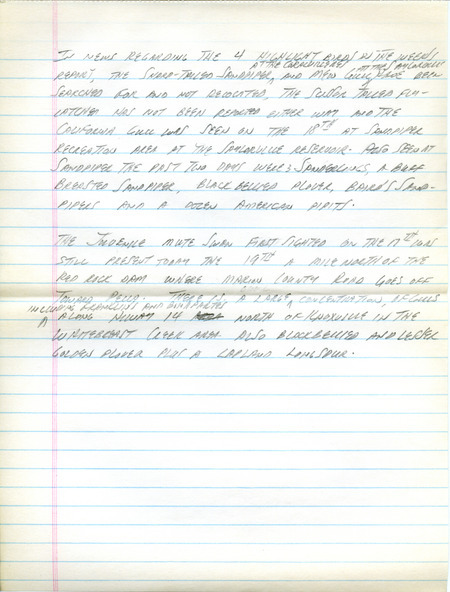 IN NEWS REGARDING THE 4 HIGHLIGHT BIRDS IN THE WEEK'S
AT THE CORALVILLE RES. AT THE SAYLORVILLE
REPORT, THE SHARP-TAILED SANDPIPER, AND MEW GULL, HAVE BEEN
SEARCHED FOR AND NOT RELOCATED, THE SCISSOR TAILED FLY-
CATCHER HAS NOT BEEN REPORTED EITHER WAY AND THE
CALIFORNIA GULL WAS SEEN ON THE 18TH AT SANDPIPER
RECREATION AREA AT THE SAYLORVILLE RESERVOIR. ALSO SEEN AT
SANDPIPER THE PAST TWO DAYS WERE 3 SANDERLINGS, A BUFF
BREASTED SANDPIPER, BLACK BELLIED PLOVER, BAIRD'S SAND-
PIPERS AND A DOZEN AMERICAN PIPITS.
THE JUVENILE MUTE SWAN FIRST SIGHTED ON THE 17TH WAS
STILL PRESENT TODAY THE 19TH A MILE NORTH OF THE
RED ROCK DAM WHERE MARION COUNTY ROAD GOES OFF
TOWARD PELLA. THERE IS A LARGE CONCENTRATION, OF GULLS
INCLUDING FRANKLIN'S AND BONAPARTES
ALONG HIWAY 14 NORTH OF KNOXVILLE IN THE
WHITEBREAST CREEK AREA ALSO BLACKBELLIED AND LESSER
GOLDEN PLOVER PLUS A LAPLAND LONGSPUR.